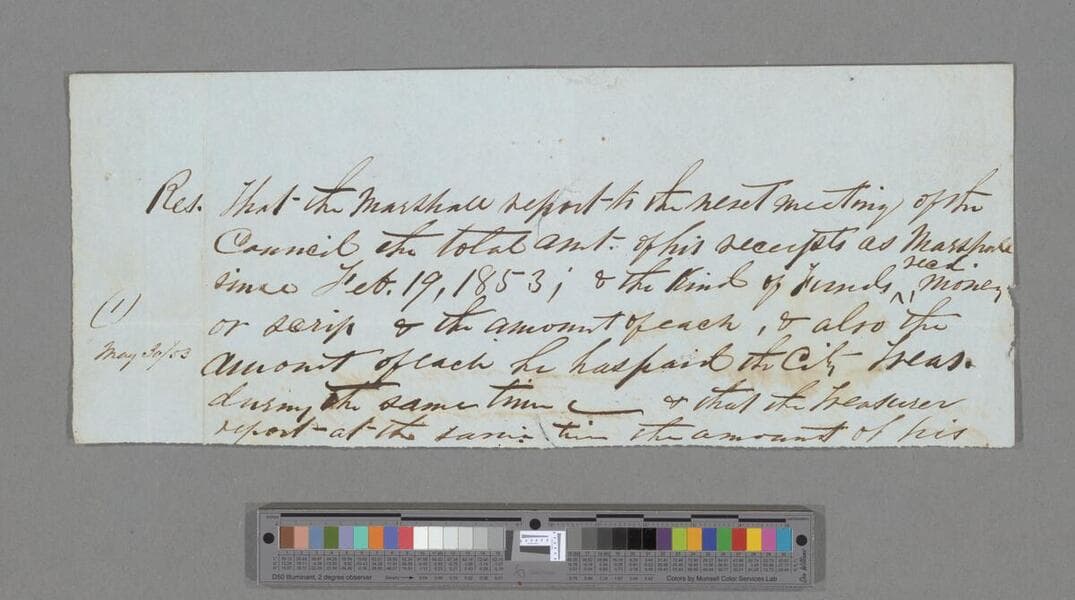 Res. That the Marshall report to the next meeting of the
Council the total amt. of his receipts as Marshall
since Feb. 19, 1853; & the Kind of Funds ^ recd, Money
or scrip & the amount of each, & also the
(1)
amount of each he has paid the City Treas.
May 30/53
during the same time & that the Treasurer
report at the same time the amount of his
D50 Illuminant, 2 degree observer
Density
Colors by Munsell Color Services Lab